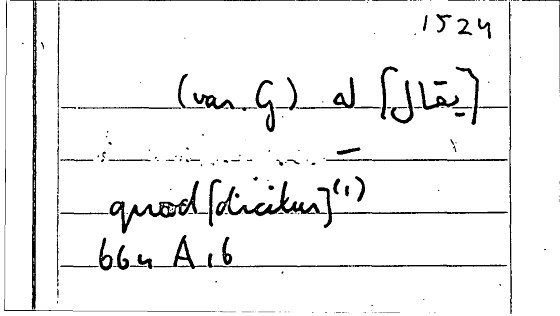 1524
(var. G) al [يقال]
quod [dicitur] (1)
664 A, 6